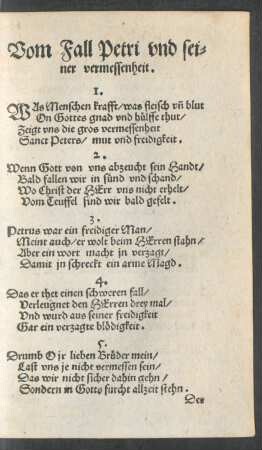 Vom Fall Petri vnd sei-
ner vermessenheit.
1.
WAs Menschen krafft/ was fleisch vñ blut
On Gottes gnad vnd hülffe thut/
Zeigt vns die gros vermessenheit
Sanct Peters/ mut vnd freidigkeit.
2.
Wenn Gott von vns abzeucht sein Handt/
Bald fallen wir in sünd vnd schand/
Wo Christ der HErr vns nicht erhelt/
Vom Teuffel sind wir bald gefelt.
3.
Petrus war ein freidiger Man/
Meint auch/ er wolt beim HErren stahn/
Aber ein wort macht jn verzagt/
Damit jn schreckt ein arme Magd.
4.
Das er thet einen schweren fall/
Verleugnet den HErren drey mal/
Vnd wurd aus seiner freidigkeit
Gar ein verzagte blödigkeit.
5.
Drumb O jr lieben Brüder mein/
Last vns je nicht vermessen sein/
Das wir nicht sicher dahin gehn/
Sondern in Gotts furcht allzeit stehn.
Der